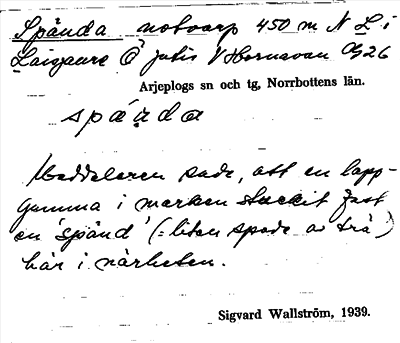 Spånda notvarp 450 m N L i
Laisgaure Ö Jutis V Hornavan Ög 26
Arjeplogs sn och tg, Norrbottens län.
spånda
Meddelaren sade, att en lapp-
gumma i marken stuckit fast
en 'spånd' (= liten spade av trä)
här i närheten.
Sigvard Wallström, 1939.